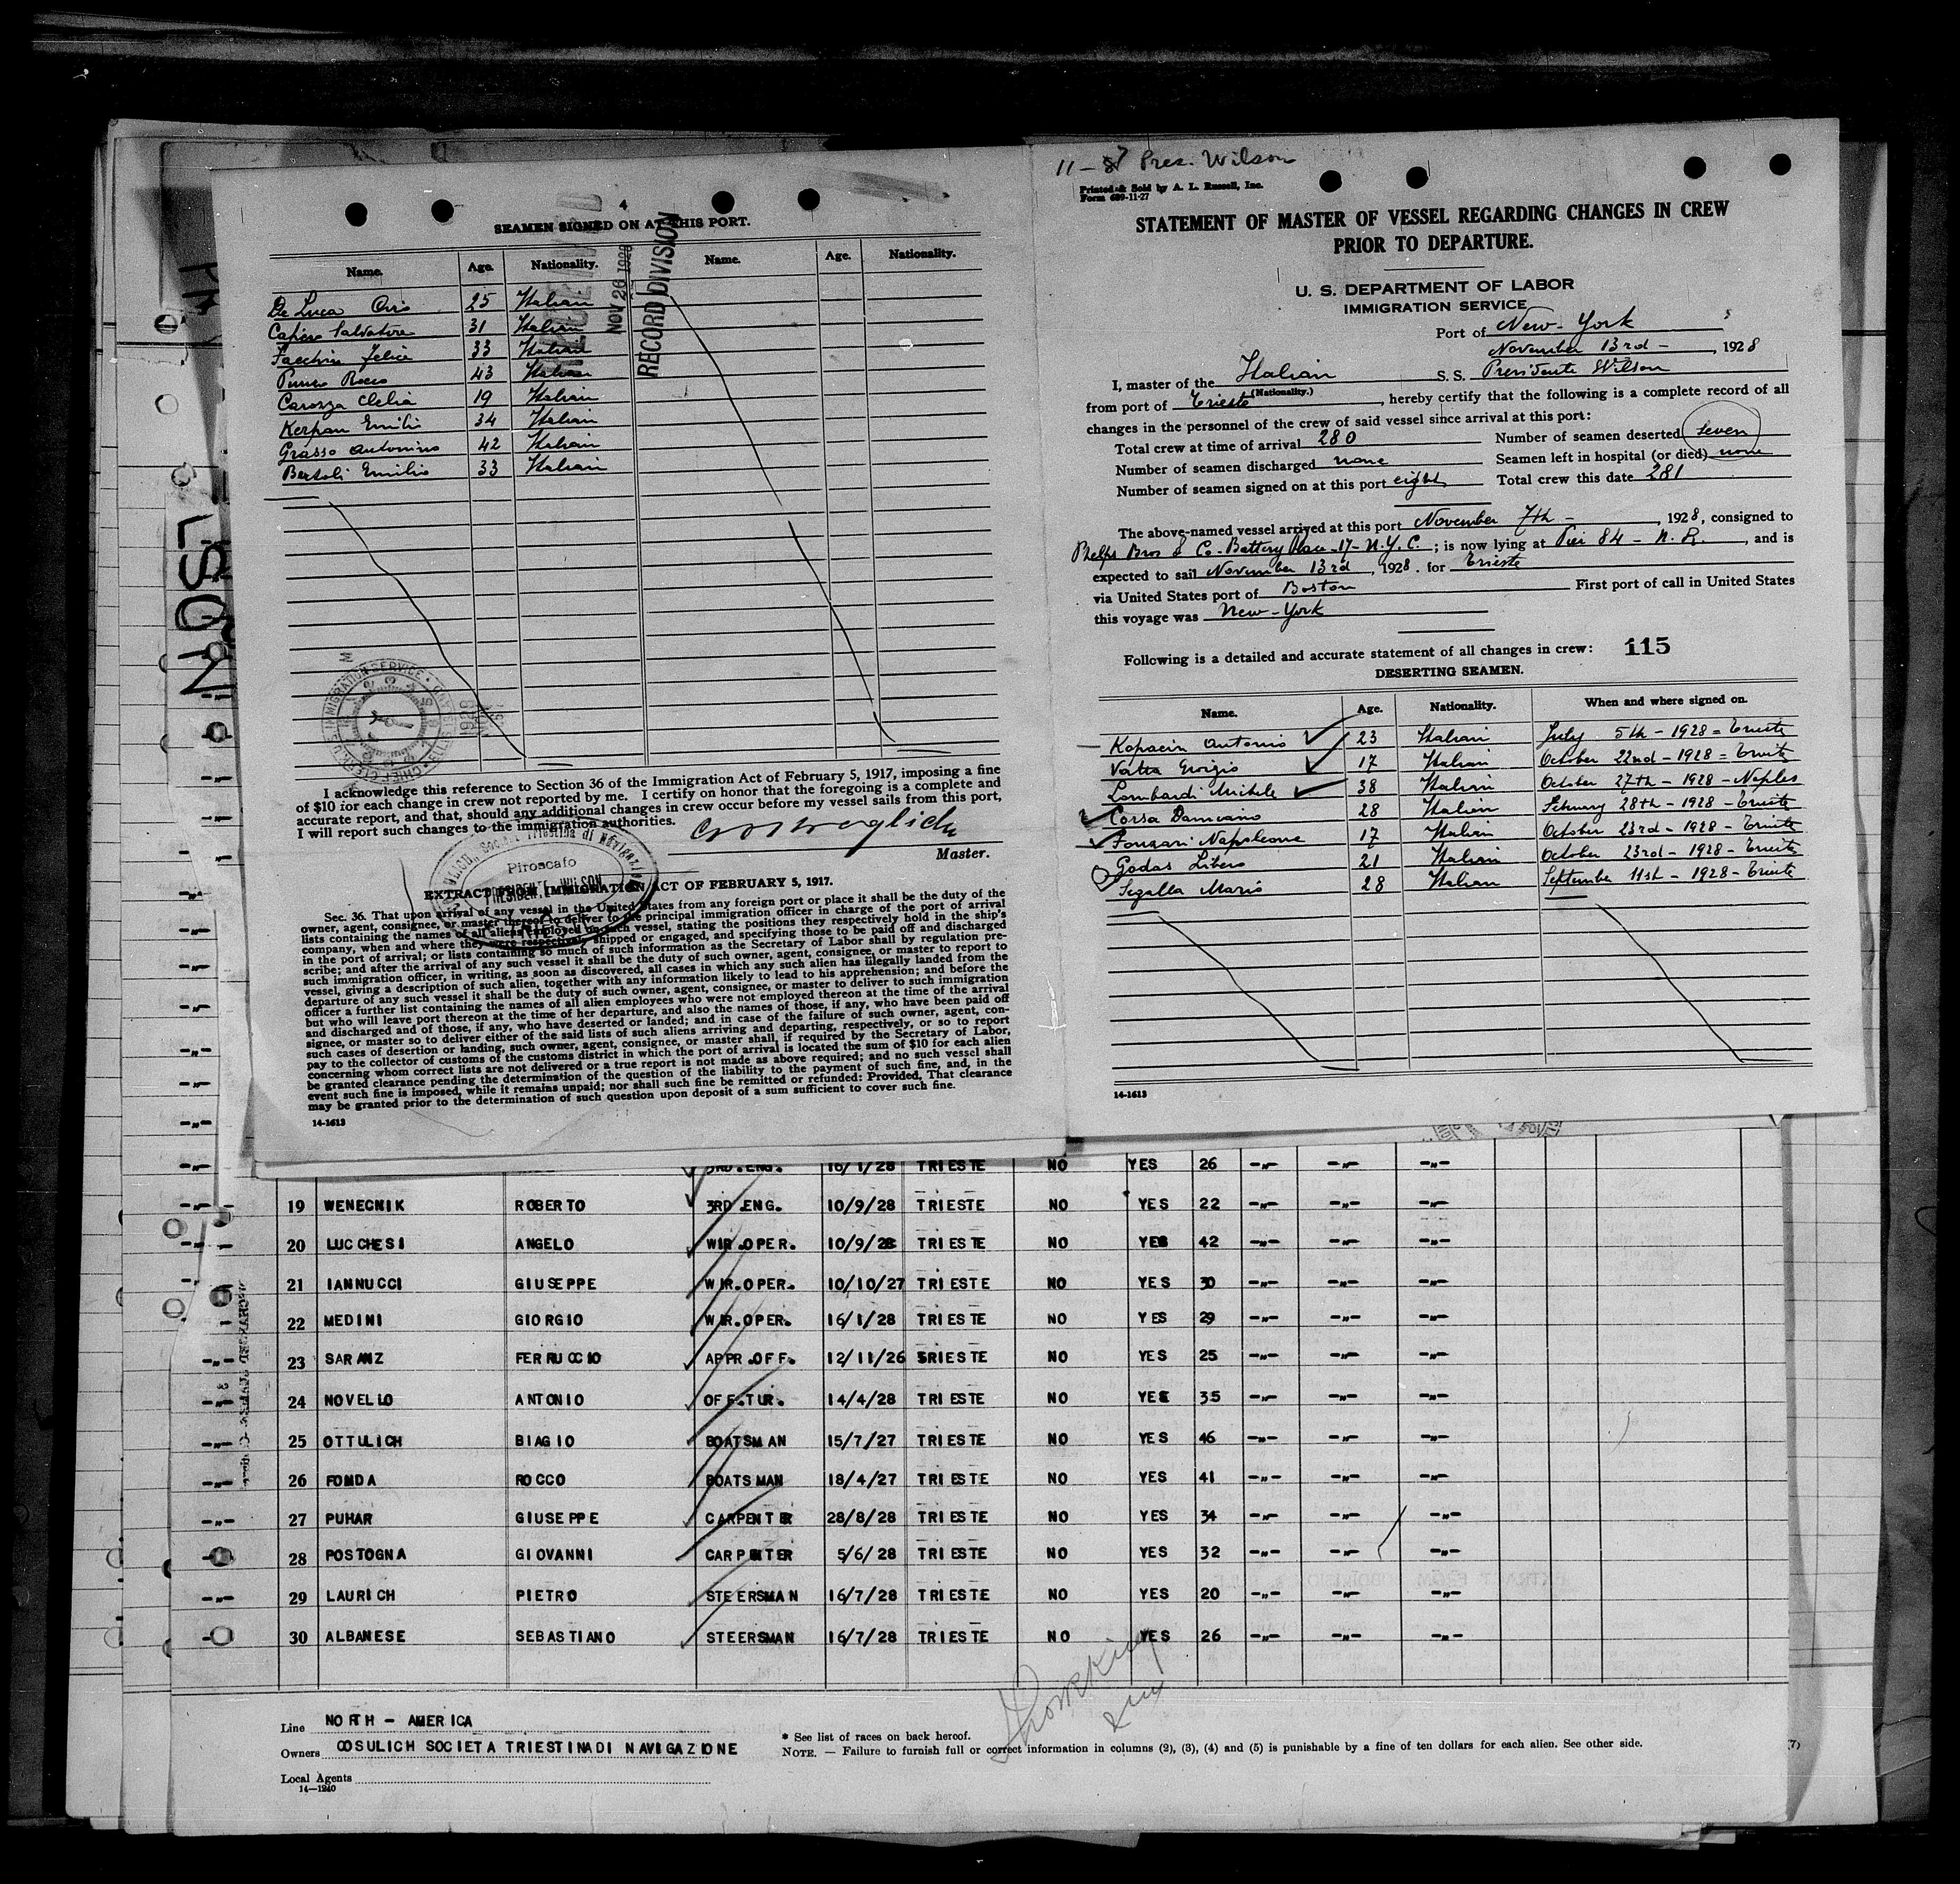 4
SEAMEN SIGNED ON AT THIS PORT.
Name. Age. Nationality. Name. Age. Nationality.
De Luca Ciro 25 Italian
Salvatore 31 Italian
Facchin Felice 33 Italian
Rocco 43 Italian
Clelia 19 Italian
Kerpan Emilio 34 Italian
Grasso Antonino 42 Italian
Bertoli Emilio 33 Italian
NOV 26 1928
RECORD DIVISION
I acknowledge this reference to Section 36 of the Immigration Act of February 5, 1917, imposing a fine
of $10 for each change in crew not reported by me. I certify on honor that the foregoing is a complete and
accurate report, and that, should any additional changes in crew occur before my vessel sails from this port,
I will report such changes to the immigration authorities.
Master.
Piroscafo
PRESIDENTE WILSON
EXTRACT FROM IMMIGRATION ACT OF FEBRUARY 5, 1917.
Sec. 36. That upon arrival of any vessel in the United States from any foreign port or place it shall be the duty of the
owner, agent, consignee, or master thereof to deliver to the principal immigration officer in charge of the port of arrival
lists containing the names of all aliens employed on such vessel, stating the positions they respectively hold in the ship's
company, when and where they were respectively shipped or engaged, and specifying those to be paid off and discharged
in the port of arrival; or lists containing so much of such information as the Secretary of Labor shall by regulation pre-
scribe; and after the arrival of any such vessel it shall be the duty of such owner, agent, consignee, or master to report to
such immigration officer, in writing, as soon as discovered, all cases in which any such alien has illegally landed from the
vessel, giving a description of such alien, together with any information likely to lead to his apprehension; and before the
departure of any such vessel it shall be the duty of such owner, agent, consignee, or master to deliver to such immigration
officer a further list containing the names of all alien employees who were not employed thereon at the time of the arrival
but who will leave port thereon at the time of her departure, and also the names of those, if any, who have been paid off
and discharged and of those, if any, who have deserted or landed; and in case of the failure of such owner, agent, con-
signee, or master so to deliver either of the said lists of such aliens arriving and departing, respectively, or so to report
such cases of desertion or landing, such owner, agent, consignee, or master shall, if required by the Secretary of Labor,
pay to the collector of customs of the customs district in which the port of arrival is located the sum of $10 for each alien
concerning whom correct lists are not delivered or a true report is not made as above required; and no such vessel shall
be granted clearance pending the determination of the question of the liability to the payment of such fine, and, in the
event such fine is imposed, while it remains unpaid; nor shall such fine be remitted or refunded: Provided, That clearance
may be granted prior to the determination of such question upon deposit of a sum sufficient to cover such fine.
14-1613
11-7 Pres. Wilson
Printed & Sold by A. L. Russell, Inc.
Form 689-11-27
STATEMENT OF MASTER OF VESSEL REGARDING CHANGES IN CREW
PRIOR TO DEPARTURE.
U. S. DEPARTMENT OF LABOR
IMMIGRATION SERVICE
Port of New-York
November 13rd - , 1928
I, master of the Italian S. S. Presidente Wilson
(Nationality.)
from port of Trieste , hereby certify that the following is a complete record of all
changes in the personnel of the crew of said vessel since arrival at this port:
Total crew at time of arrival 280 Number of seamen deserted seven
Number of seamen discharged none Seamen left in hospital (or died) none
Number of seamen signed on at this port eight Total crew this date 281
The above-named vessel arrived at this port November 7th - , 1928, consigned to
Phelps Bros & Co - Battery Place - 17 - N.Y.C. ; is now lying at Pier 84 - N. R. , and is
expected to sail November 13rd , 1928 . for Trieste
via United States port of Boston First port of call in United States
this voyage was New-York
Following is a detailed and accurate statement of all changes in crew: 115
DESERTING SEAMEN.
Name. Age. Nationality. When and where signed on.
Kopacin Antonio 23 Italian July 5th - 1928 = Trieste
Vatta Giorgio 17 Italian October 22nd - 1928 = Trieste
Lombardi Michele 38 Italian October 27th - 1928 - Naples
Corsa Damiano 28 Italian February 28th - 1928 - Trieste
Napoleone 17 Italian October 23rd - 1928 - Trieste
Godas Libero 21 Italian October 23rd - 1928 - Trieste
Segalla Mario 28 Italian September 11st - 1928 - Trieste
14-1613
LSON
3RD.ENG. 16/1/28 TRIESTE NO YES 26 -"- -"- -"-
-"- 19 WENECNIK ROBERTO 3RD.ENG. 10/9/28 TRIESTE NO YES 22 -"- -"- -"-
-"- 20 LUCCHESI ANGELO WIR.OPER. 10/9/28 TRIESTE NO YES 42 -"- -"- -"-
21 IANNUCCI GIUSEPPE WIR.OPER. 10/10/27 TRIESTE NO YES 30 -"- -"- -"-
22 MEDINI GIORGIO WIR.OPER. 16/1/28 TRIESTE NO YES 29 -"- -"- -"-
-"- 23 SARANZ FERRUCCIO APPR.OFF. 12/11/26 SRIESTE NO YES 25 -"- -"- -"-
-"- 24 NOVELLO ANTONIO OFF.TUR. 14/4/28 TRIESTE NO YES 35 -"- -"- -"-
-"- 25 OTTULICH BIAGIO BOATSMAN 15/7/27 TRIESTE NO YES 46 -"- -"- -"-
-"- 26 FONDA ROCCO BOATSMAN 18/4/27 TRIESTE NO YES 41 -"- -"- -"-
-"- 27 PUHAR GIUSEPPE CARPENTER 28/8/28 TRIESTE NO YES 34 -"- -"- -"-
28 POSTOGNA GIOVANNI CARPENTER 5/6/28 TRIESTE NO YES 32 -"- -"- -"-
-"- 29 LAURICH PIETRO STEERSMAN 16/7/28 TRIESTE NO YES 20 -"- -"- -"-
30 ALBANESE SEBASTIANO STEERSMAN 16/7/28 TRIESTE NO YES 26 -"- -"- -"-
Line NORTH - AMERICA
Owners COSULICH SOCIETA TRIESTINADI NAVIGAZIONE
Local Agents
14-1240
* See list of races on back hereof.
NOTE. — Failure to furnish full or correct information in columns (2), (3), (4) and (5) is punishable by a fine of ten dollars for each alien. See other side.
(7)